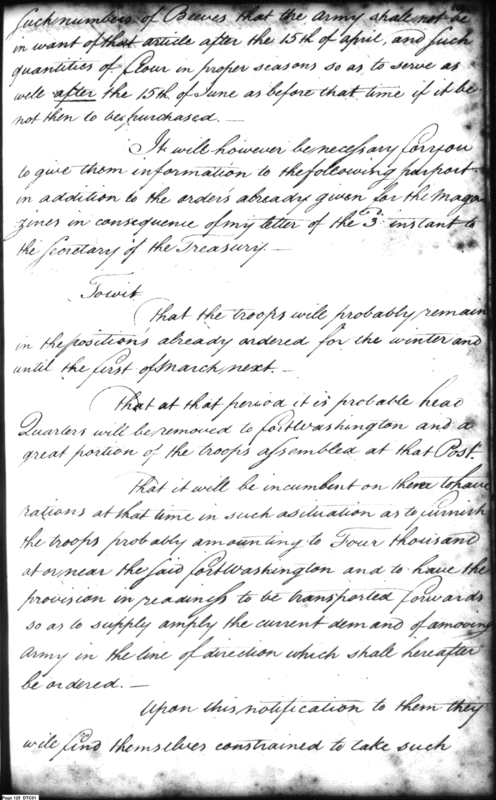 Such numbers of Beeves that the army shall not be
in want of that article after the 15th of April, and such
quantities of flour in proper seasons so as to serve as
well after the 15th of June as before that time if it be
not then to be purchased. —
It will however be necessary for you
to give them information to the following purport
in addition to the orders already given for the Maga
zines in consequence of my letter of the 3d instant to
the Secretary of the Treasury —
To wit
That the troops will probably remain
in the positions already ordered for the winter and
until the first of March next. —
That at that period it is probable head
Quarters will be removed to fort Washington and a
great portion of the troops assembled at that Post.
That it will be incumbent on them to have
rations at that time in such a situation as to furnish
the troops probably amounting to Four thousand
at or near the said fort Washington and to have the
provision in readiness to be transported forwards
so as to supply amply the current demand of a moving
Army in the line of direction which shall hereafter
be ordered. —
Upon this notification to them they
will find themselves constrained to take such
Page 125 DTC01